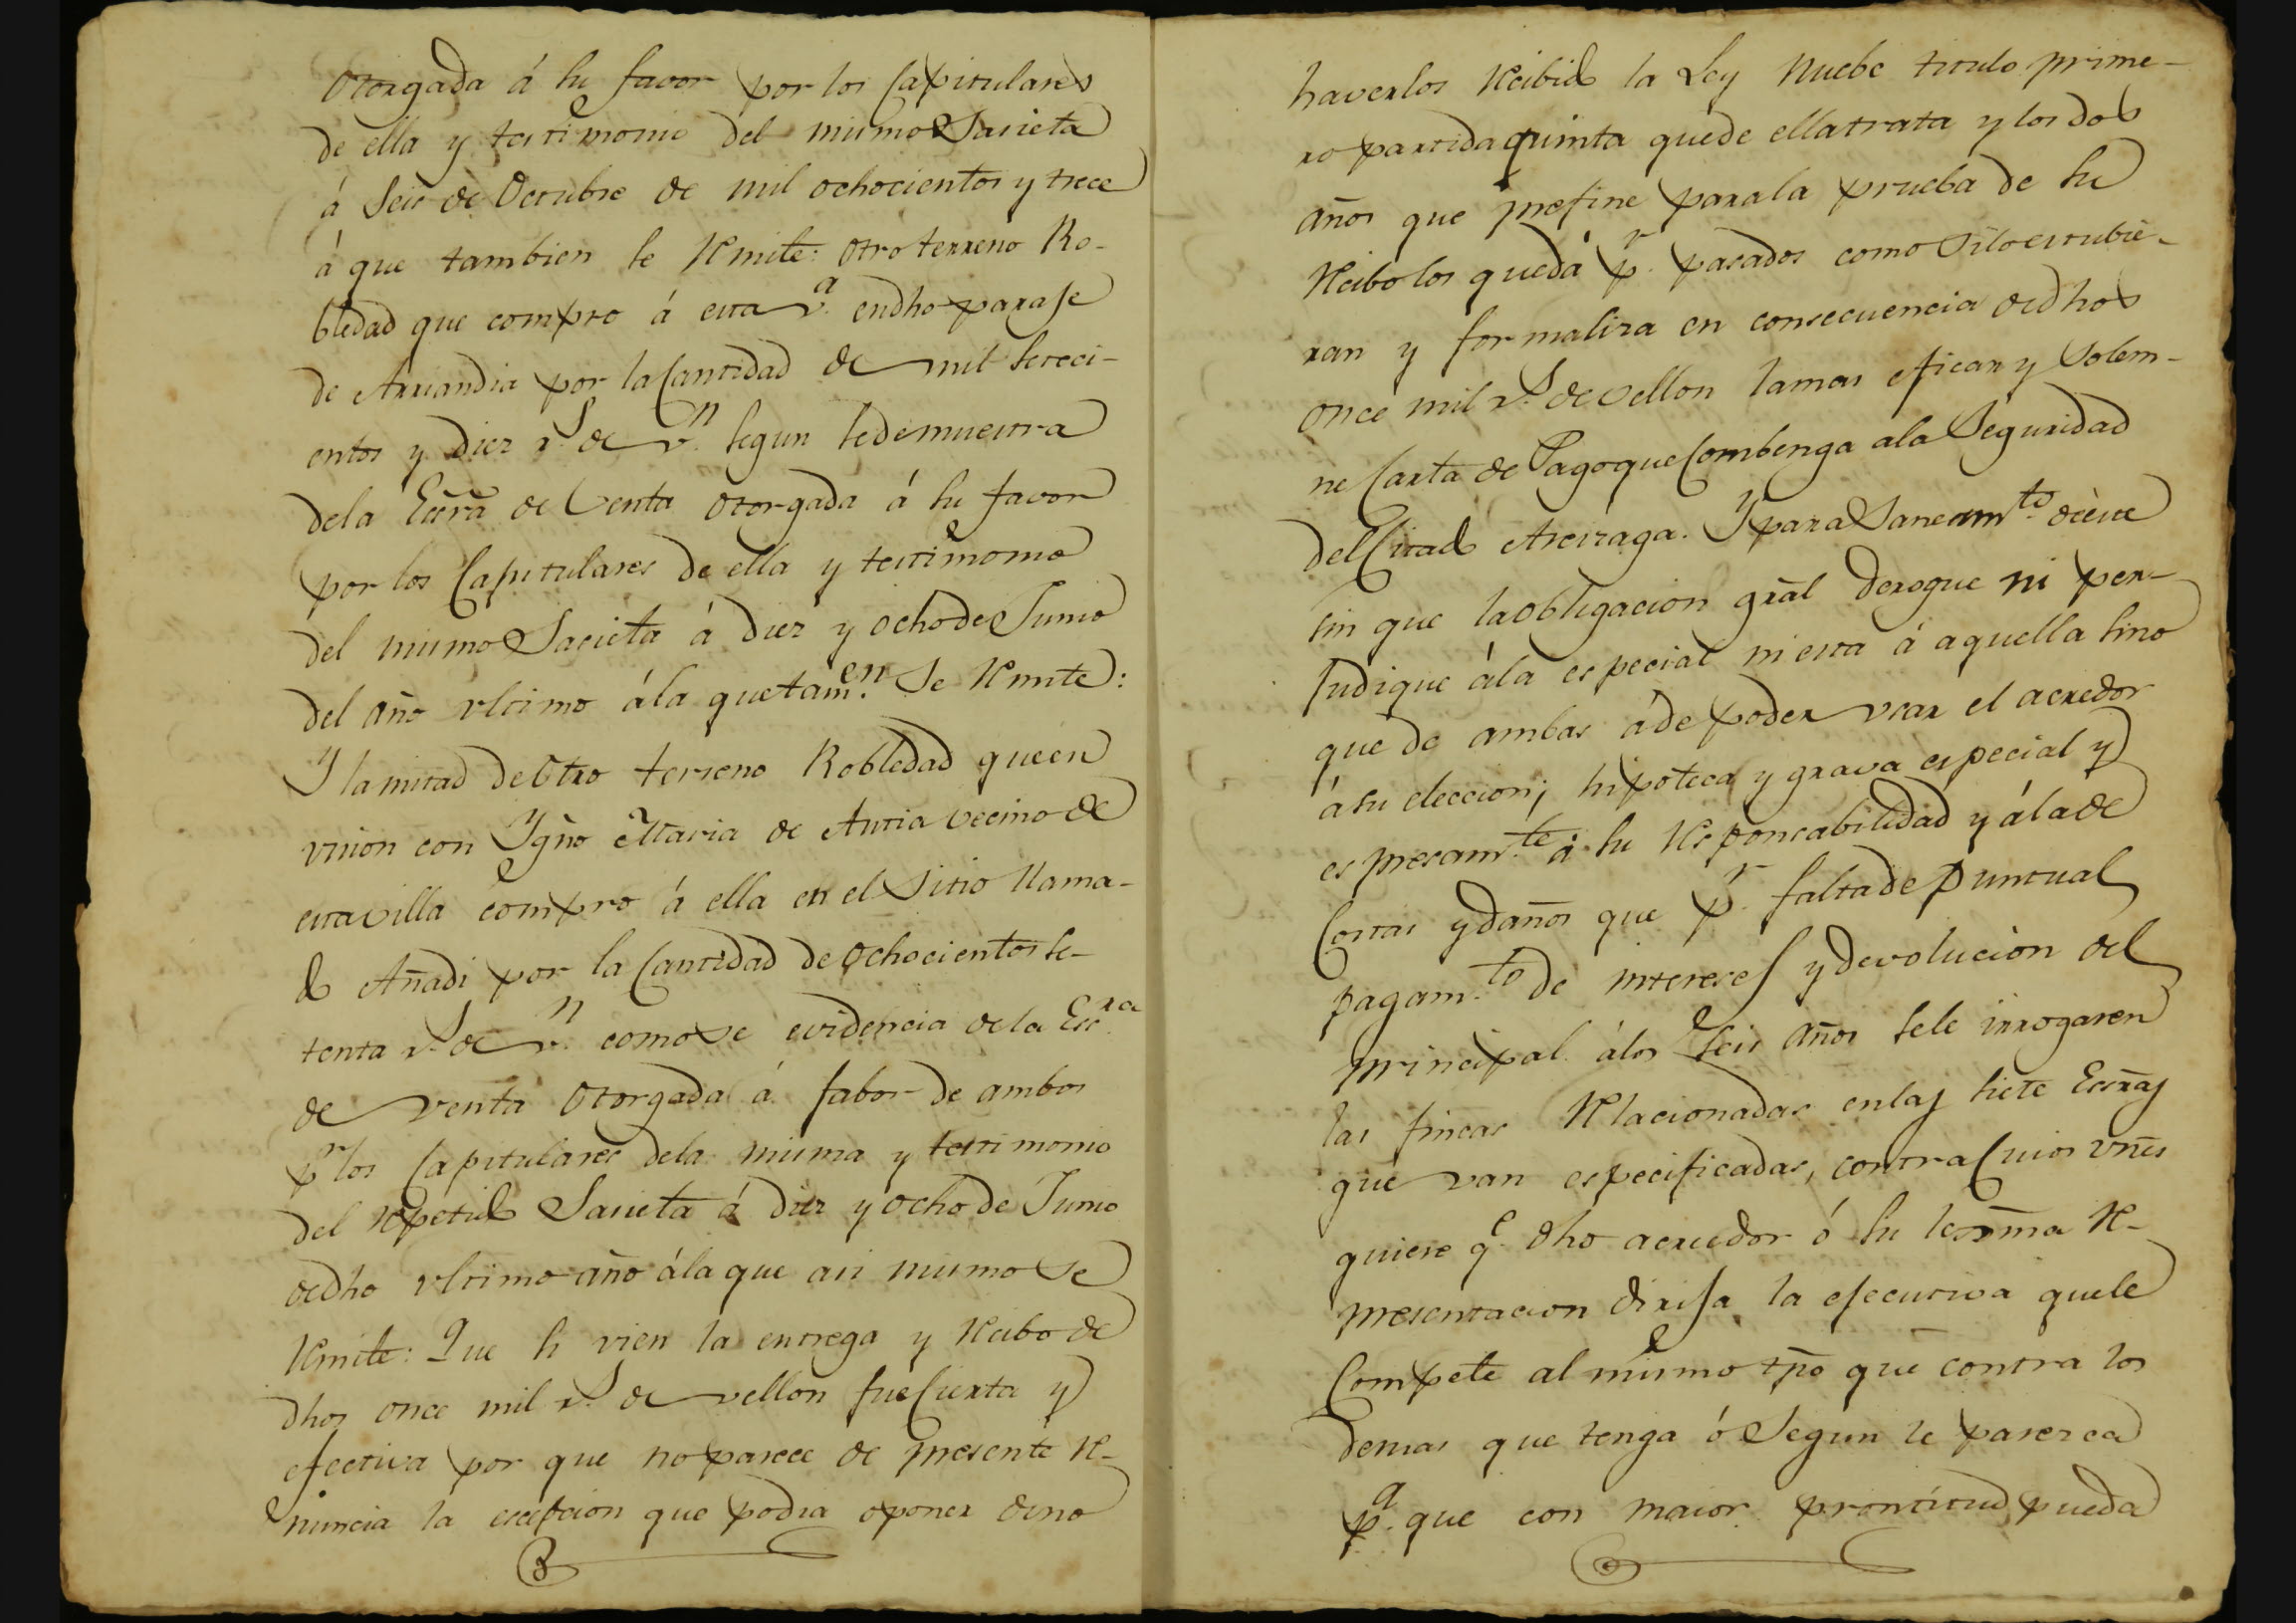 otorgada á su favor por los Capitulares
de ella y testimonio del mismo Sarieta
á Seis de Octubre de mil ochocientos y trece
á que tambien se Remite: otro terreno Ro-
bledad que compro á esta v.ª endho paraje
de Arriandia por la Cantidad de mil seteci-
entos y diez r.s de v.n segun sedemuestra
dela Escrã de Venta otorgada á su favor
por los Capitulares de ella y testimonio
del mismo Sarieta á diez y ocho de Junio
del año vltimo ála quetam.en Se Remite:
Y la mitad de Otro terreno Robledad que en
vnion con Ygño Maria de Antia vecino de
esta villa compro á ella en el Sitio llama-
do Añadi por la Cantidad de ochocientos se-
tenta r.s de v.n como Se evidencia de la Esc.ra
de venta Otorgada á fabor de ambos
p.r los Capitulares dela misma y testimonio
del repetido Sarieta á diez y ocho de Junio
dedho vltimo año ála que asi mismo Se
Remite: Que si vien la entrega y Recibo de
dhos once mil r.s de vellon fue Cierta y
efectiva por que no parece de presente Re-
nuncia la escepcion que podia oponer deno
haverlos Recibido la Ley Nuebe titulo prime-
ro partida quinta quede ella trata y los dos
años que prefine para la prueba de su
Recibo los que dá p.r pasados como Silo estubie-
ran y formaliza en consecuencia dedhos
once mil r.s de vellon la mas eficaz y Solem-
ne Carta de Pago que Combenga ala Seguridad
del Citado Aseizaga. Y para Saneam.to deeste
sin que la obligacion grãl derogue ni per-
judique ála especial ni esta á aquella sino
que de ambas á de poder vsar el acredor
á su eleccion; hipoteca y grava especial y
espresam.te á su Responsabilidad y ála de
Costas y daños que p.r falta de puntual
pagam.to de intereses y devolucion del
principal álos Seis años sele irrogaren
las fincas Relacionadas enlas siete Escrãs
que van especificadas, contra Cuios vñes
quiere q.e dho acreedor ó su lexma Re-
presentacion dirija la ejecutiva quele
Compete al mismo tpõ que contra los
demas que tenga ó Segun le parezca
p.a que con maior prontitud pueda